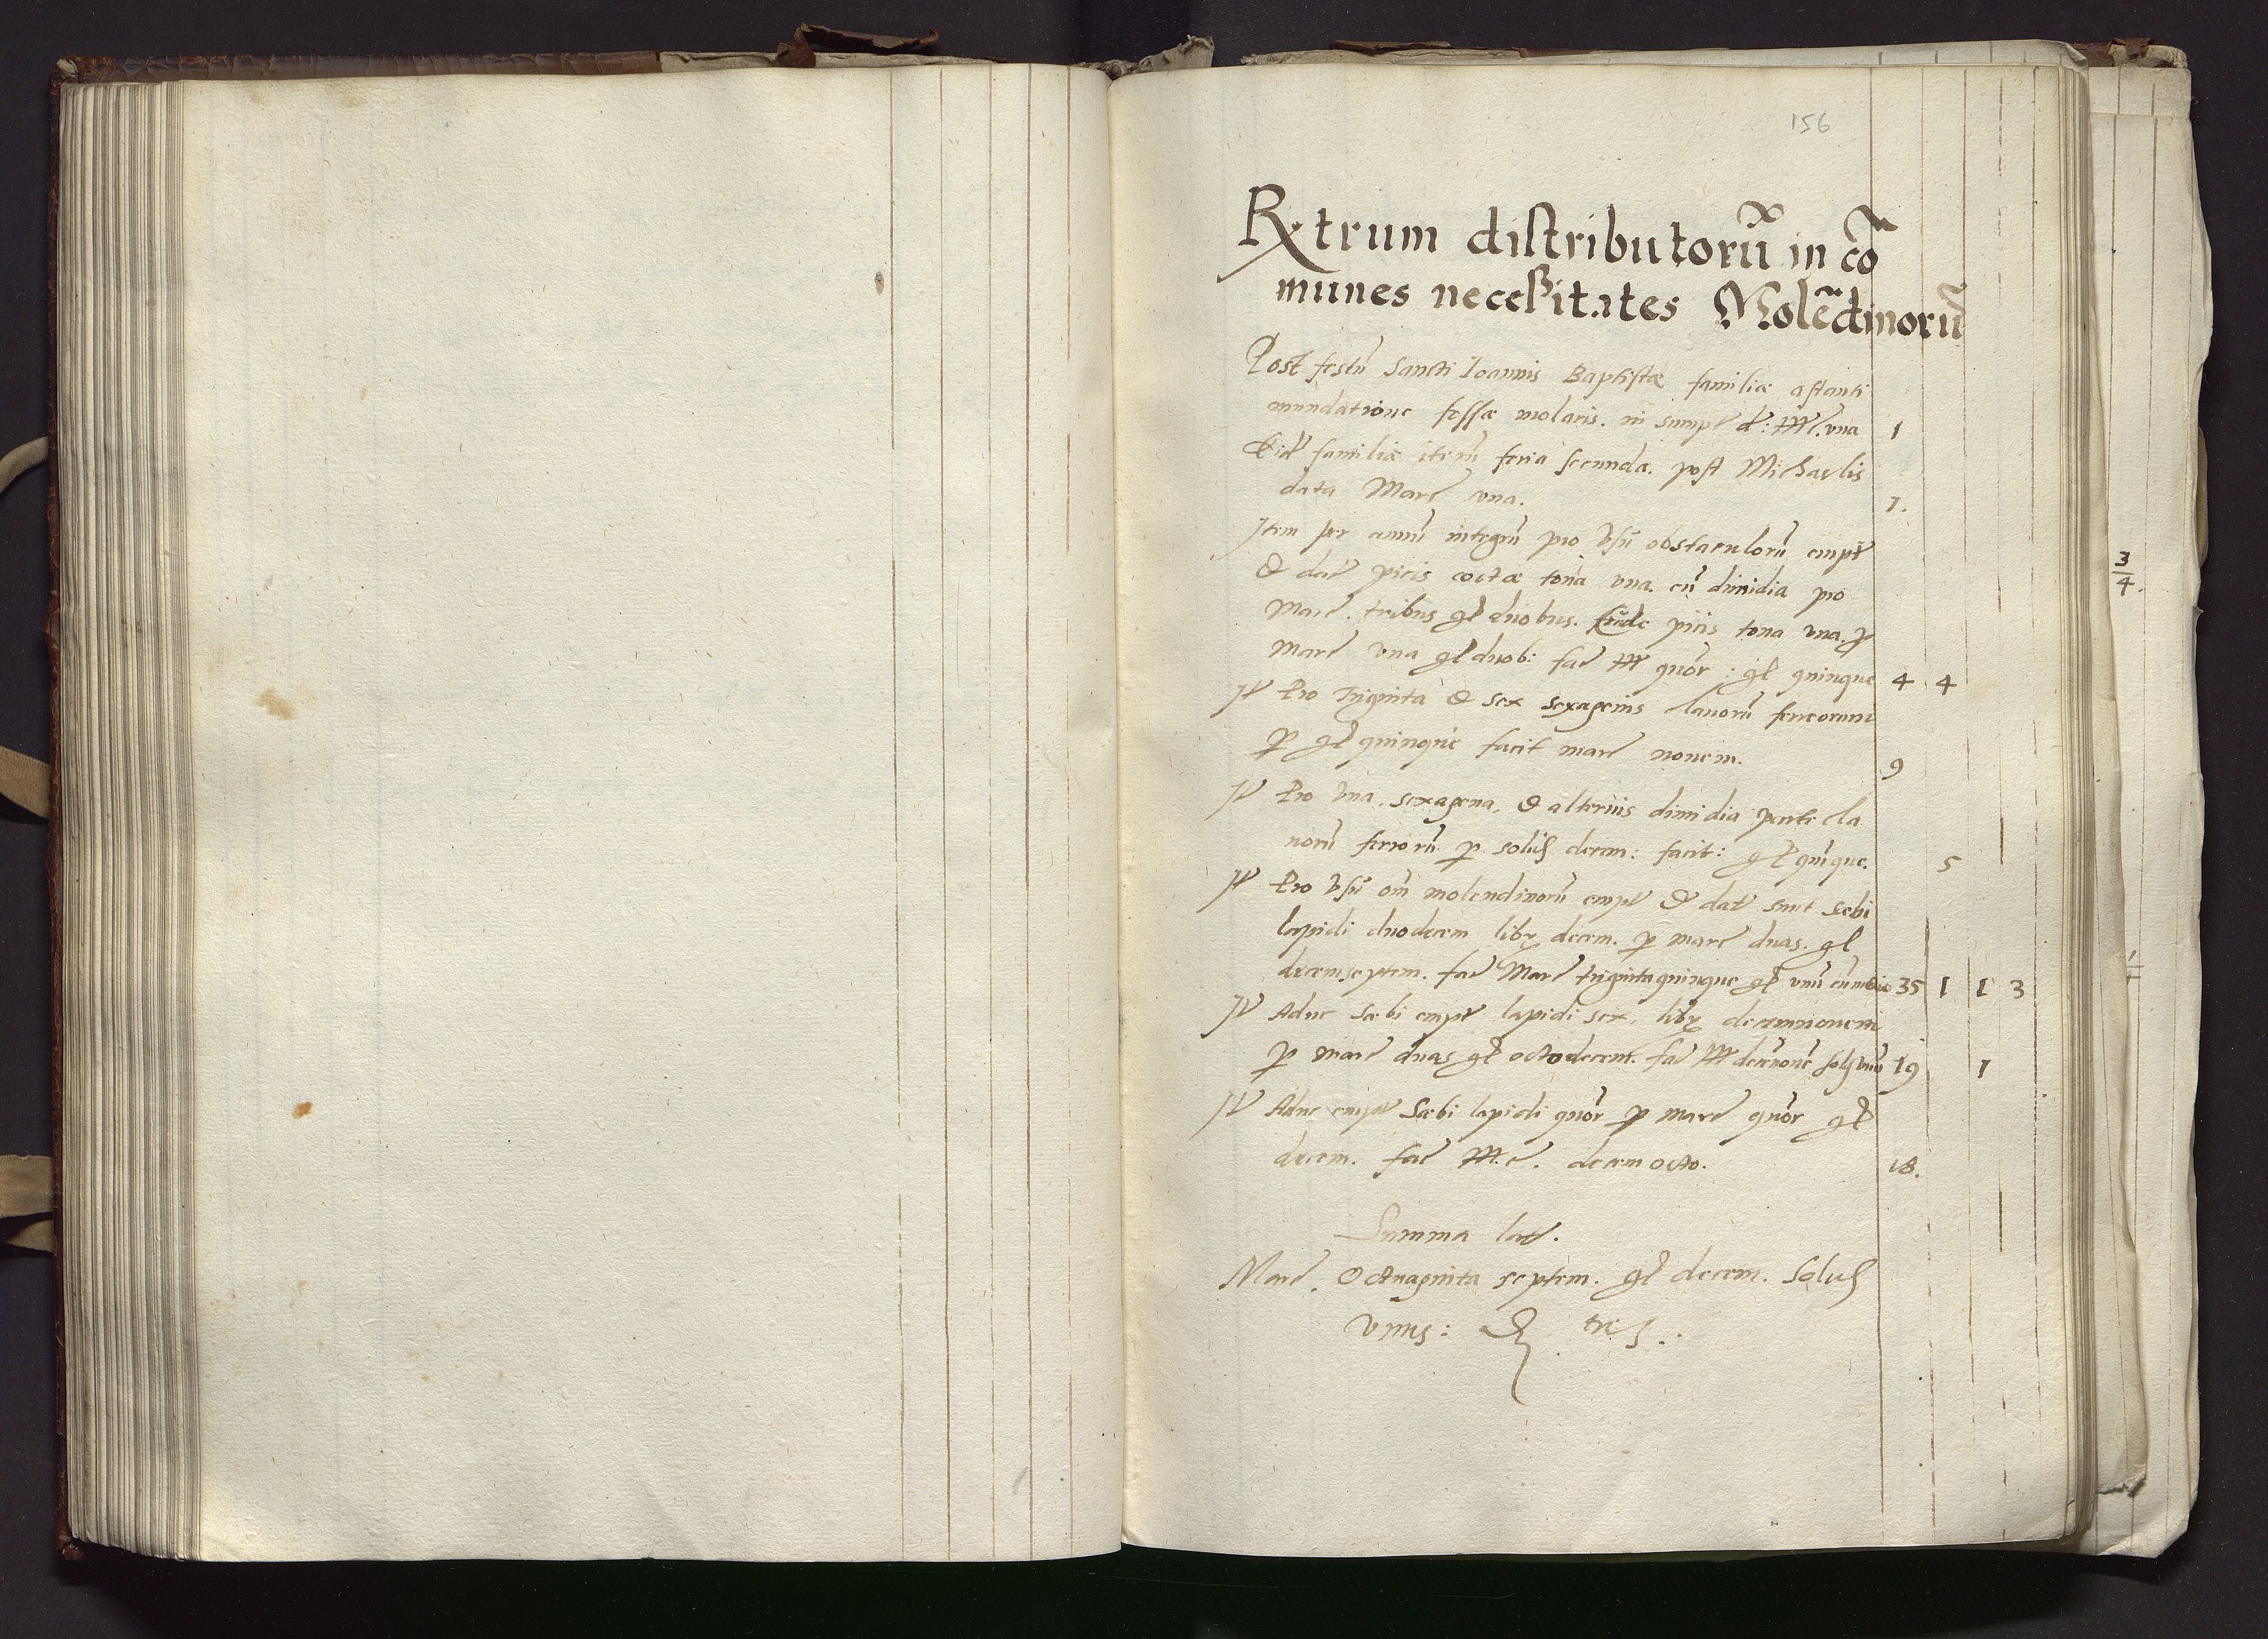 156
Rxtrum distributorũ in cõ
munes necessitates Molẽdinorũ
Post festũ Sancti Ioannis Baptistæ familiæ astanti
mundatione fossæ molaris. in sumpt d: M. vna 1
Eidẽ familiæ iterũ feria secunda. post Michaelis
data Marc vna. 1.
Item per annũ integrũ pro vsũ obstaculorũ empt
& dat picis coctæ tona vna. cũ dimidia pro
Marc. tribus gl duobus. picis tona vna. p
Marc vna gl duob: fac M quor : gl quinque 4 4
It Pro Triginta & sex sexagenis clauorũ ferreorum
p gl quinque facit marc nouem. 9
It Pro vna. sexagena, & alterius dimidia parte cla
uorũ ferrorũ p solid decem: facit: gl quĩque. 5
It Pro vsũ om molendinorũ empt & dat sunt sebi
lapidi duodecem libr decem. p marc duas. gl
decemseptem. fac Marc trigintaquinque gl vnũ cũ 35 1 1 3
It Aduc sæbi empt lapidi sex, libr decemnouem
p marc duas gl octodecem. fac M decẽnouẽ sols vnũ 19 1
It Aduc empt Sæbi lapidi quor p marc quor gl
decem. fac M.c. decem octo. 18.
Summa lat.
Marc. Octuaginta septem. gl decem. Solid
vnus: D tres.
3
4.